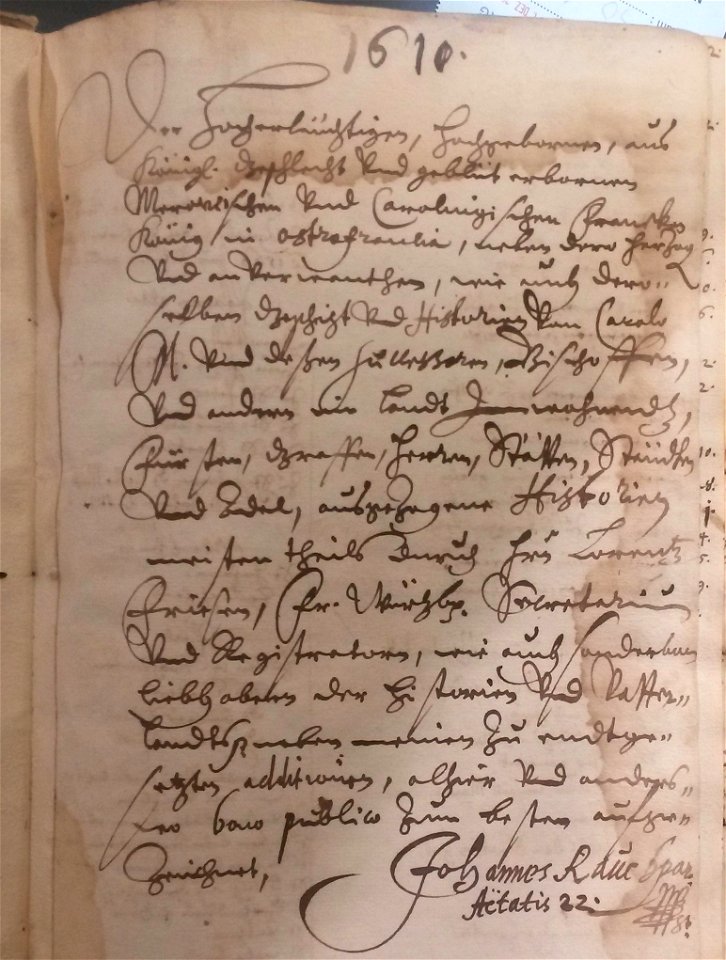 1610.
Der Hocherleuchtigen, Hochgebornen, aus
Königl. Geschlecht Vnd geblüt erbornen
Merovischen Vnd Carolingischen Frenckischen
König in Ostrofrancia, neben dero Herzog
Vnd anverwanthen, wie auch dero-
selben Geschicht Vnd Historien Von Carolo
M. Vnd deßen Bischoffen,
Vnd andern im Landt Innwohnendt,
Fürsten, Graffen, Herren, Stätten,
Vnd Adel, ausgezogene Historien
meisten theils durch Hrn Lorentz
Friesen, Fr. Würzb. Secretarium
Vnd Registratorn, wie auch sonderbarn
liebhabern der Historien Vnd Vatter-
landts, neben meinen zu endtge-
setzten additionen, alhier Vnd anders-
wo bono publico zum besten aufge-
zeichnet,
Johannes
Aëtatis 22.